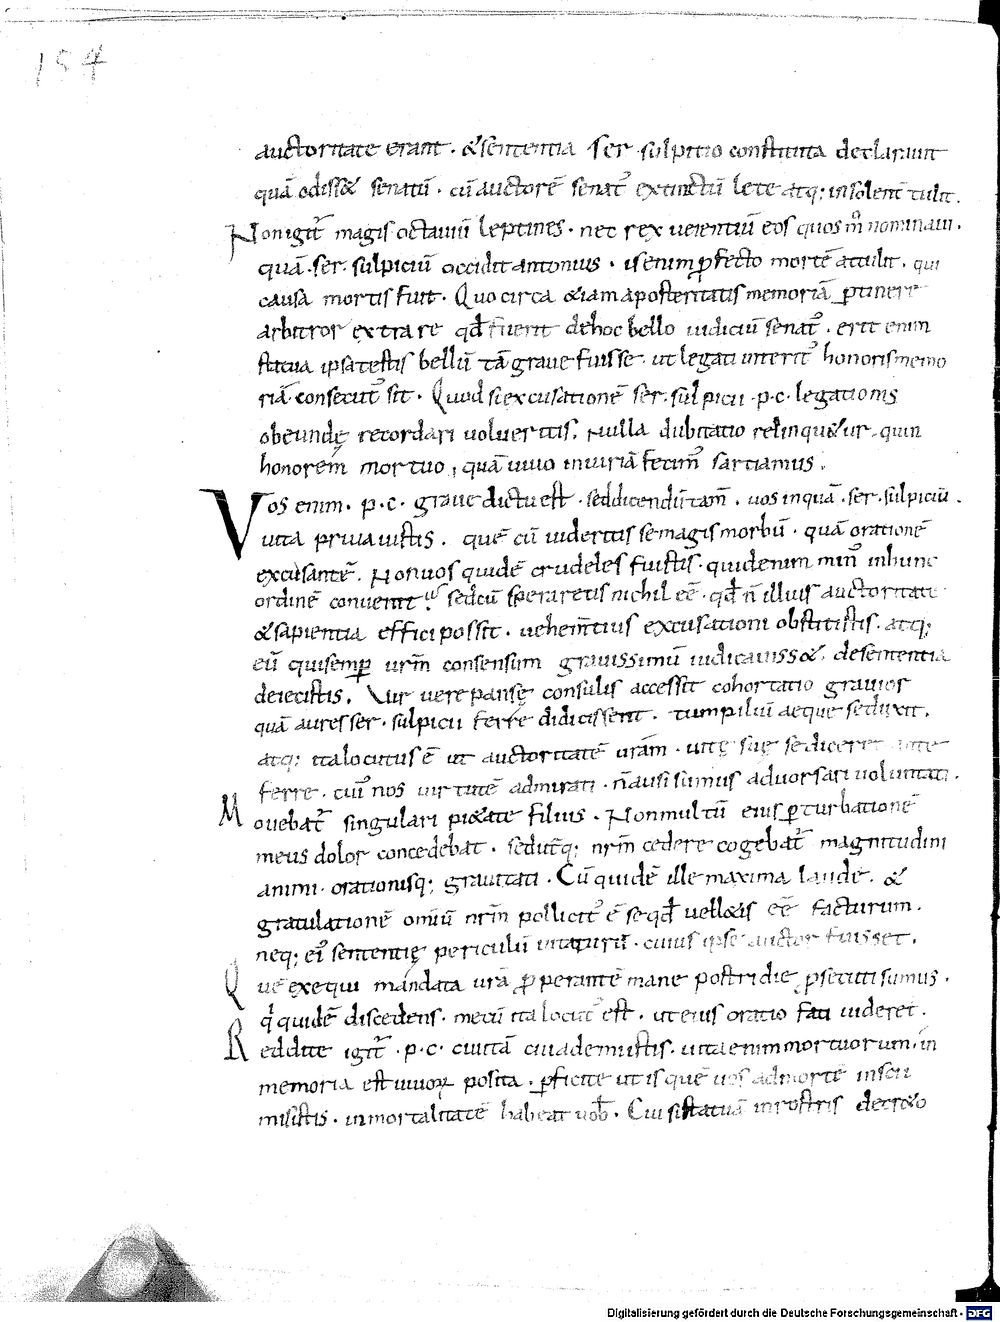 154
auctoritate erant . &sententia ser sulpitio constituta declarauit
quā odiss& senatū . cū auctorē senat᾽ extinctū lete atq; insolent᾽ tulit .
Non igit᾽ magis octauiū leptines . nec rex ueientiū eos quos m̊ nominaui .
quā . ser . sulpiciū occidit antonius . is enim p̱fecto mortē attulit . qui
causa mortis fuit . Quocirca &iam aposteritatis memoriā p̱tinere
arbitror extrare qđ fuerit dehoc bello iudiciū senat᾽ . erit enim
statua ipsa testis bellū tā graue fuisse . ut legati interit᾽ honoris memo
riā consecut᾽ sit . Quod si excusationē ser . sulpicii . p . c . legationis
obeundę recordari uolueritis . Nulla dubitatio relinqu&ur . quin
honorem mortuo , quā uiuo iniuriā fecim᾽ sarciamus .
Vos enim . p . c . graue dictu est . sed dicendū tam̄ . uos inquā . ser . sulpiciū .
uita priuauistis . quē cū uideritis se magis morbū . quā orationē
excusantē . Non uos quidē crudeles fuistis . quid enim min᾽ in hunc
ordinē conuenit . sed cū speraretis nichil eē . qđ n̄ illius auctoritate
&sapientia effici possit . uehem̄tius excusationi obstitistis . atq;
eū qui semp̱ urm̄ consensum grauissimū iudicauiss& . de sententia
deiecistis . Vir uere pansę consulis accessit cohortatio grauior
quā aures ser . sulpicii ferre didicissent . tum piliū aeque seduxit .
atq; ita locutus ē ut auctoritatē urām . uitę suę se diceret ante
ferre . cui᾽ nos uirtutē admirati . n̄ ausi sumus aduorsari uoluntati .
Mouebat᾽ singulari pi&ate filius . Non multū eius p̱turbationē
meus dolor concedebat . sed ut᾽q; nrm̄ cedere cogebat᾽ magnitudini
animi . orationisq; grauitati . Cū quidē ille maxima laude . &
gratulatione omiū nrm̄ pollicit᾽ ē se qđ uell&is eē facturum .
neq; ei᾽ sententię periculū uitaturū . cuius ipse auctor fuisset .
Quē exequi mandata urā p̱perantē mane postridie p̱secuti sumus .
q᾽ quidē discedens . mecū ita locut᾽ est . ut eius oratio fati uideret᾽ .
Reddite igit᾽ . p . c . cui uitā ciuademistis . uita enim mortuorum . in
memoria est uiuoꝝ posita . p̱ficite ut is quē uos ad mortē inscii
misistis . inmortalitatē habeat uob᾽ . Cui si statuā in rostris decr&o
Digitalisierung gefördert durch die Deutsche Forschungsgemeinschaft - DFG